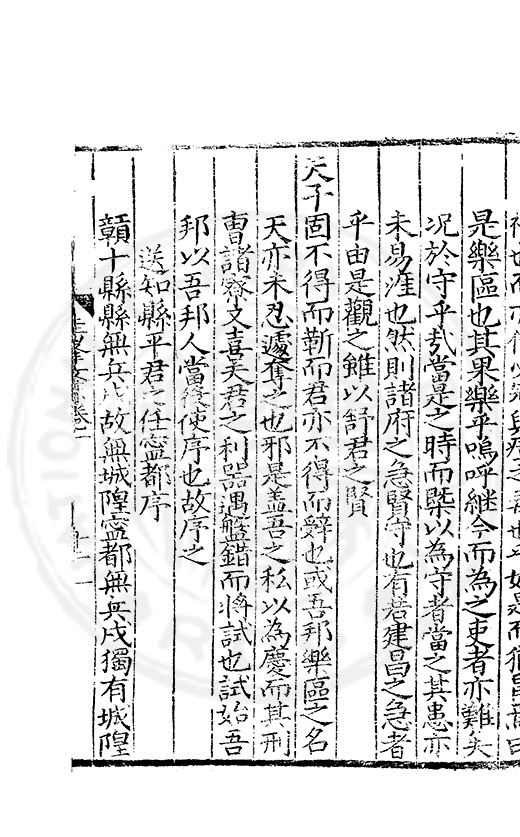 是樂區也其果樂乎嗚呼継今而為之吏者亦難矣
况於守乎哉當是之時而槩以為守者當之其患亦
未易涯也然則諸府之急賢守也有若建昌之急者
乎由是觀之雖以舒君之賢
天子固不得而靳而君亦不得而辭也或吾邦樂區之名
天亦未忍遽奪之也邪是盖吾之私以為慶而其刑
曹諸寮又喜夫君之利器遇盤錯而將試也試始吾
邦以吾邦人當後使序也故序之
送知縣平君之任寧都序
贛十縣縣無兵戍故無城隍寧都無兵戍獨有城隍